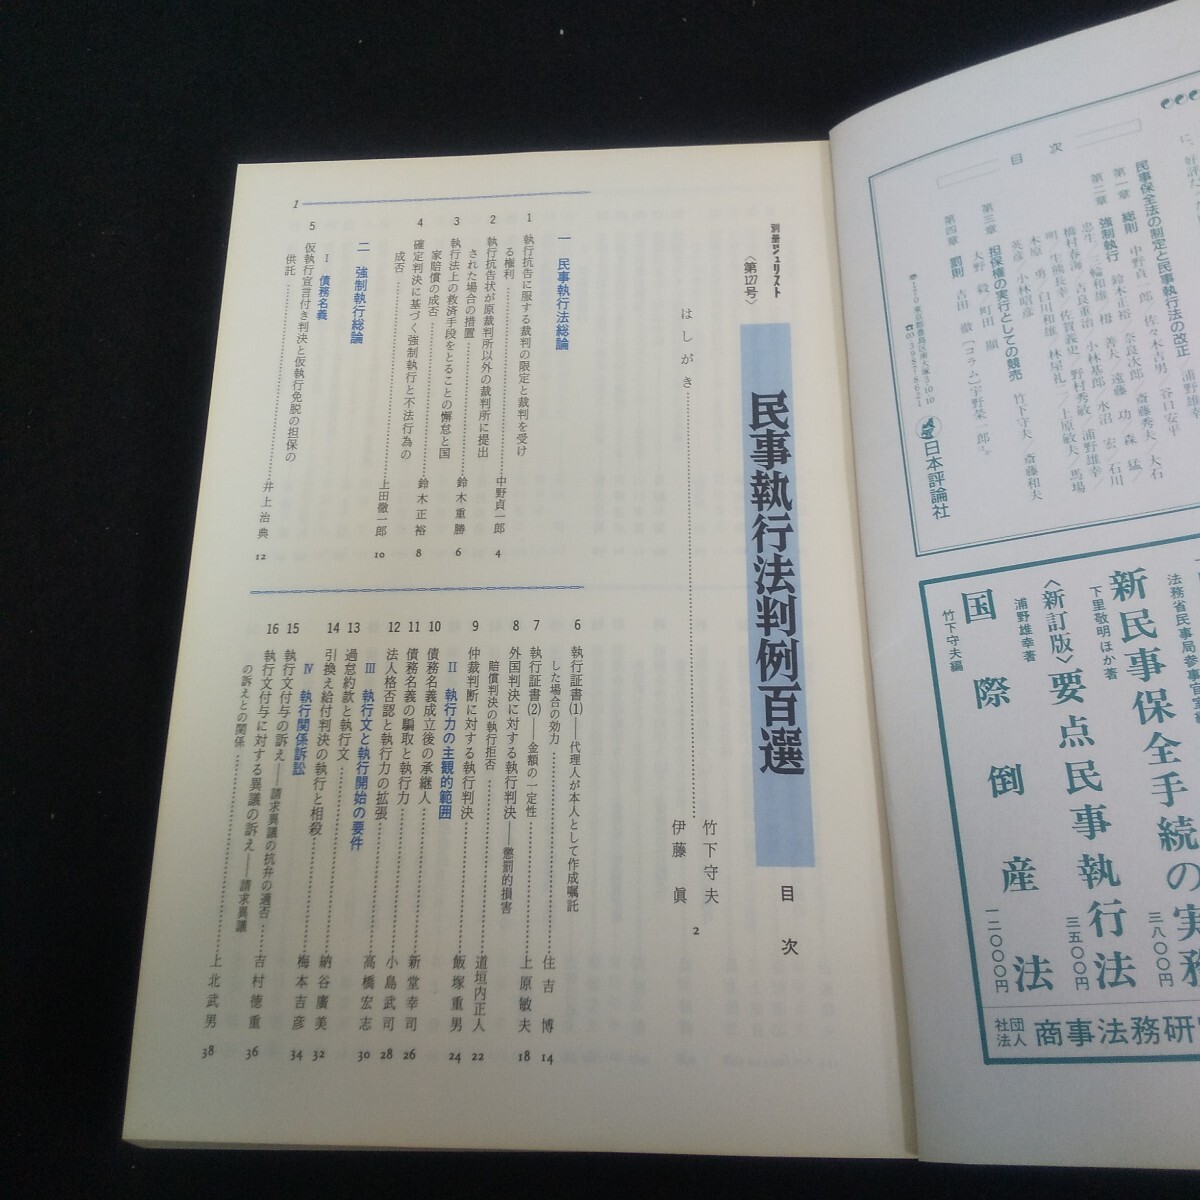 別冊ジュリスト
〈第127号〉
民事執行法判例百選
目次
はしがき
竹下守夫
伊藤眞
2
一 民事執行法総論
1 執行抗告に服する裁判の限定と裁判を受け
る権利
中野貞一郎 4
2 執行抗告状が原裁判所以外の裁判所に提出
された場合の措置
鈴木重勝 6
3 執行法上の救済手段をとることの懈怠と国
家賠償の成否
鈴木正裕 8
4 確定判決に基づく強制執行と不法行為の
成否
上田徹一郎 10
二 強制執行総論
I 債務名義
5 仮執行宣言付き判決と仮執行免脱の担保の
供託
井上治典 12
1
6 執行証書(1)――代理人が本人として作成嘱託
した場合の効力
住吉博 14
7 執行証書(2)――金額の一定性
上原敏夫 18
8 外国判決に対する執行判決――懲罰的損害
賠償判決の執行拒否
道垣内正人 22
9 仲裁判断に対する執行判決
飯塚重男 24
II 執行力の主観的範囲
10 債務名義成立後の承継人
新堂幸司 26
11 債務名義の騙取と執行力
小島武司 28
12 法人格否認と執行力の拡張
高橋宏志 30
III 執行文と執行開始の要件
13 過怠約款と執行文
納谷廣美 32
14 引換え給付判決の執行と相殺
梅本吉彦 34
IV 執行関係訴訟
15 執行文付与の訴え――請求異議の抗弁の適否
吉村徳重 36
16 執行文付与に対する異議の訴え――請求異議
の訴えとの関係
上北武男 38
目次
民事保全法の制定と民事執行法の改正
第一章 総則
第二章 強制執行
第三章 担保権の実行としての競売
第四章 罰則
日本評論社
法務省民事局参事官室
新民事保全手続の実務
三八〇〇円
下里敬明ほか著
〈新訂版〉要点民事執行法
三五〇〇円
浦野雄幸著
国際倒産法
一二〇〇〇円
竹下守夫編
社団法人 商事法務研